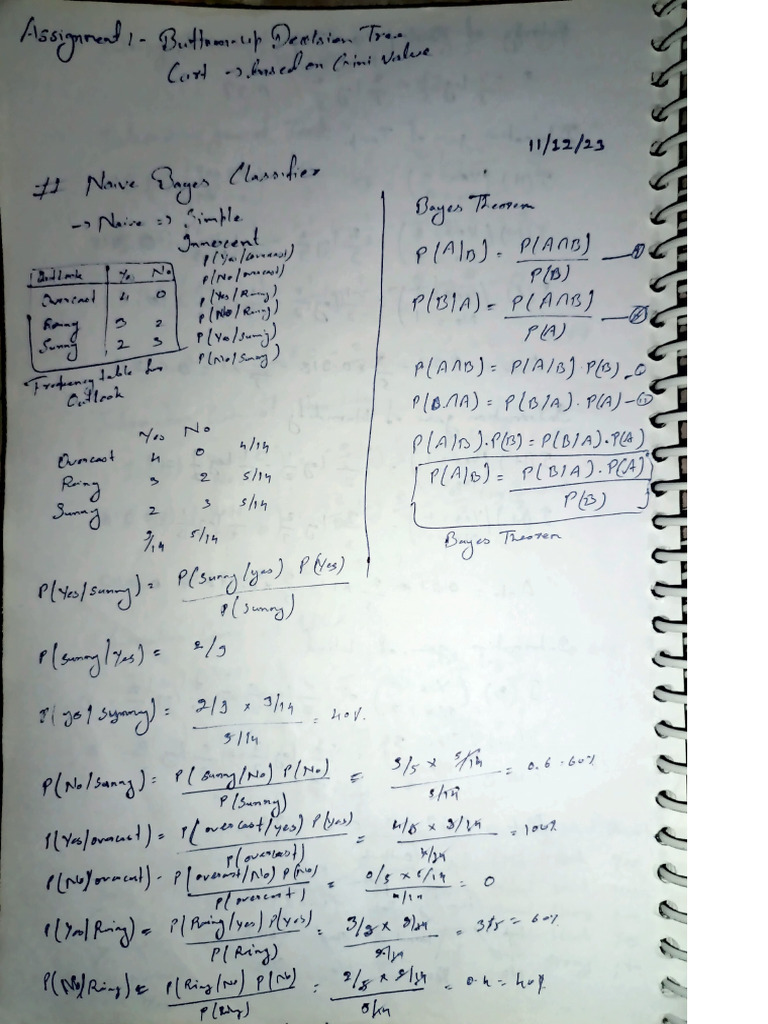 Assignment 1 - Buttom-up Decision Tree
Cart -> based on Gini Value
11/12/23
# Naive Bayes Classifier
-> Naive => Simple
Innocent
Outlook Yes No
Overcast 4 0
Rainy 3 2
Sunny 2 3
Frequency table for
Outlook
P(Yes/overcast)
P(No/overcast)
P(Yes/Rainy)
P(No/Rainy)
P(Yes/Sunny)
P(No/Sunny)
Yes No
Overcast 4 0 4/14
Rainy 3 2 5/14
Sunny 2 3 5/14
9/14 5/14
Bayes Theorem
P(A|B) = P(A∩B) / P(B)
P(B|A) = P(A∩B) / P(A)
P(A∩B) = P(A|B) · P(B)
P(B∩A) = P(B/A) · P(A)
P(A|B) · P(B) = P(B/A) · P(A)
P(A|B) = P(B|A) · P(A) / P(B)
Bayes Theorem
P(Yes/Sunny) = P(Sunny/yes) P(Yes) / P(Sunny)
P(Sunny/Yes) = 2/9
P(yes/Sunny) = 2/9 x 9/14 / 5/14 = 40%
P(No/Sunny) = P(Sunny/No) P(No) / P(Sunny) = 3/5 x 5/14 / 5/14 = 0.6 = 60%
P(Yes/overcast) = P(overcast/yes) P(yes) / P(overcast) = 4/9 x 9/14 / 4/14 = 100%
P(No/overcast) = P(overcast/No) P(No) / P(overcast) = 0/5 x 5/14 / 4/14 = 0
P(Yes/Rainy) = P(Rainy/yes) P(yes) / P(Rainy) = 3/9 x 9/14 / 5/14 = 3/5 = 60%
P(No/Rainy) = P(Rainy/No) P(No) / P(Rainy) = 2/5 x 5/14 / 5/14 = 0.4 = 40%